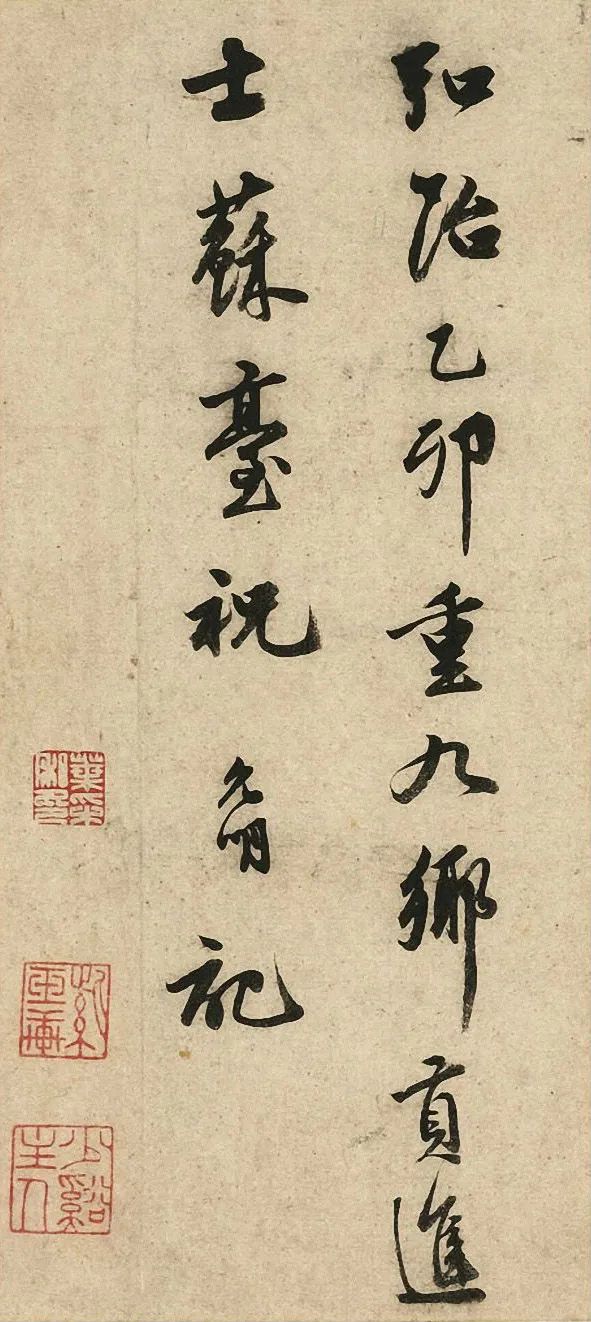 弘治乙卯重九鄉貢進
士蘇臺祝允明記
少谿主人